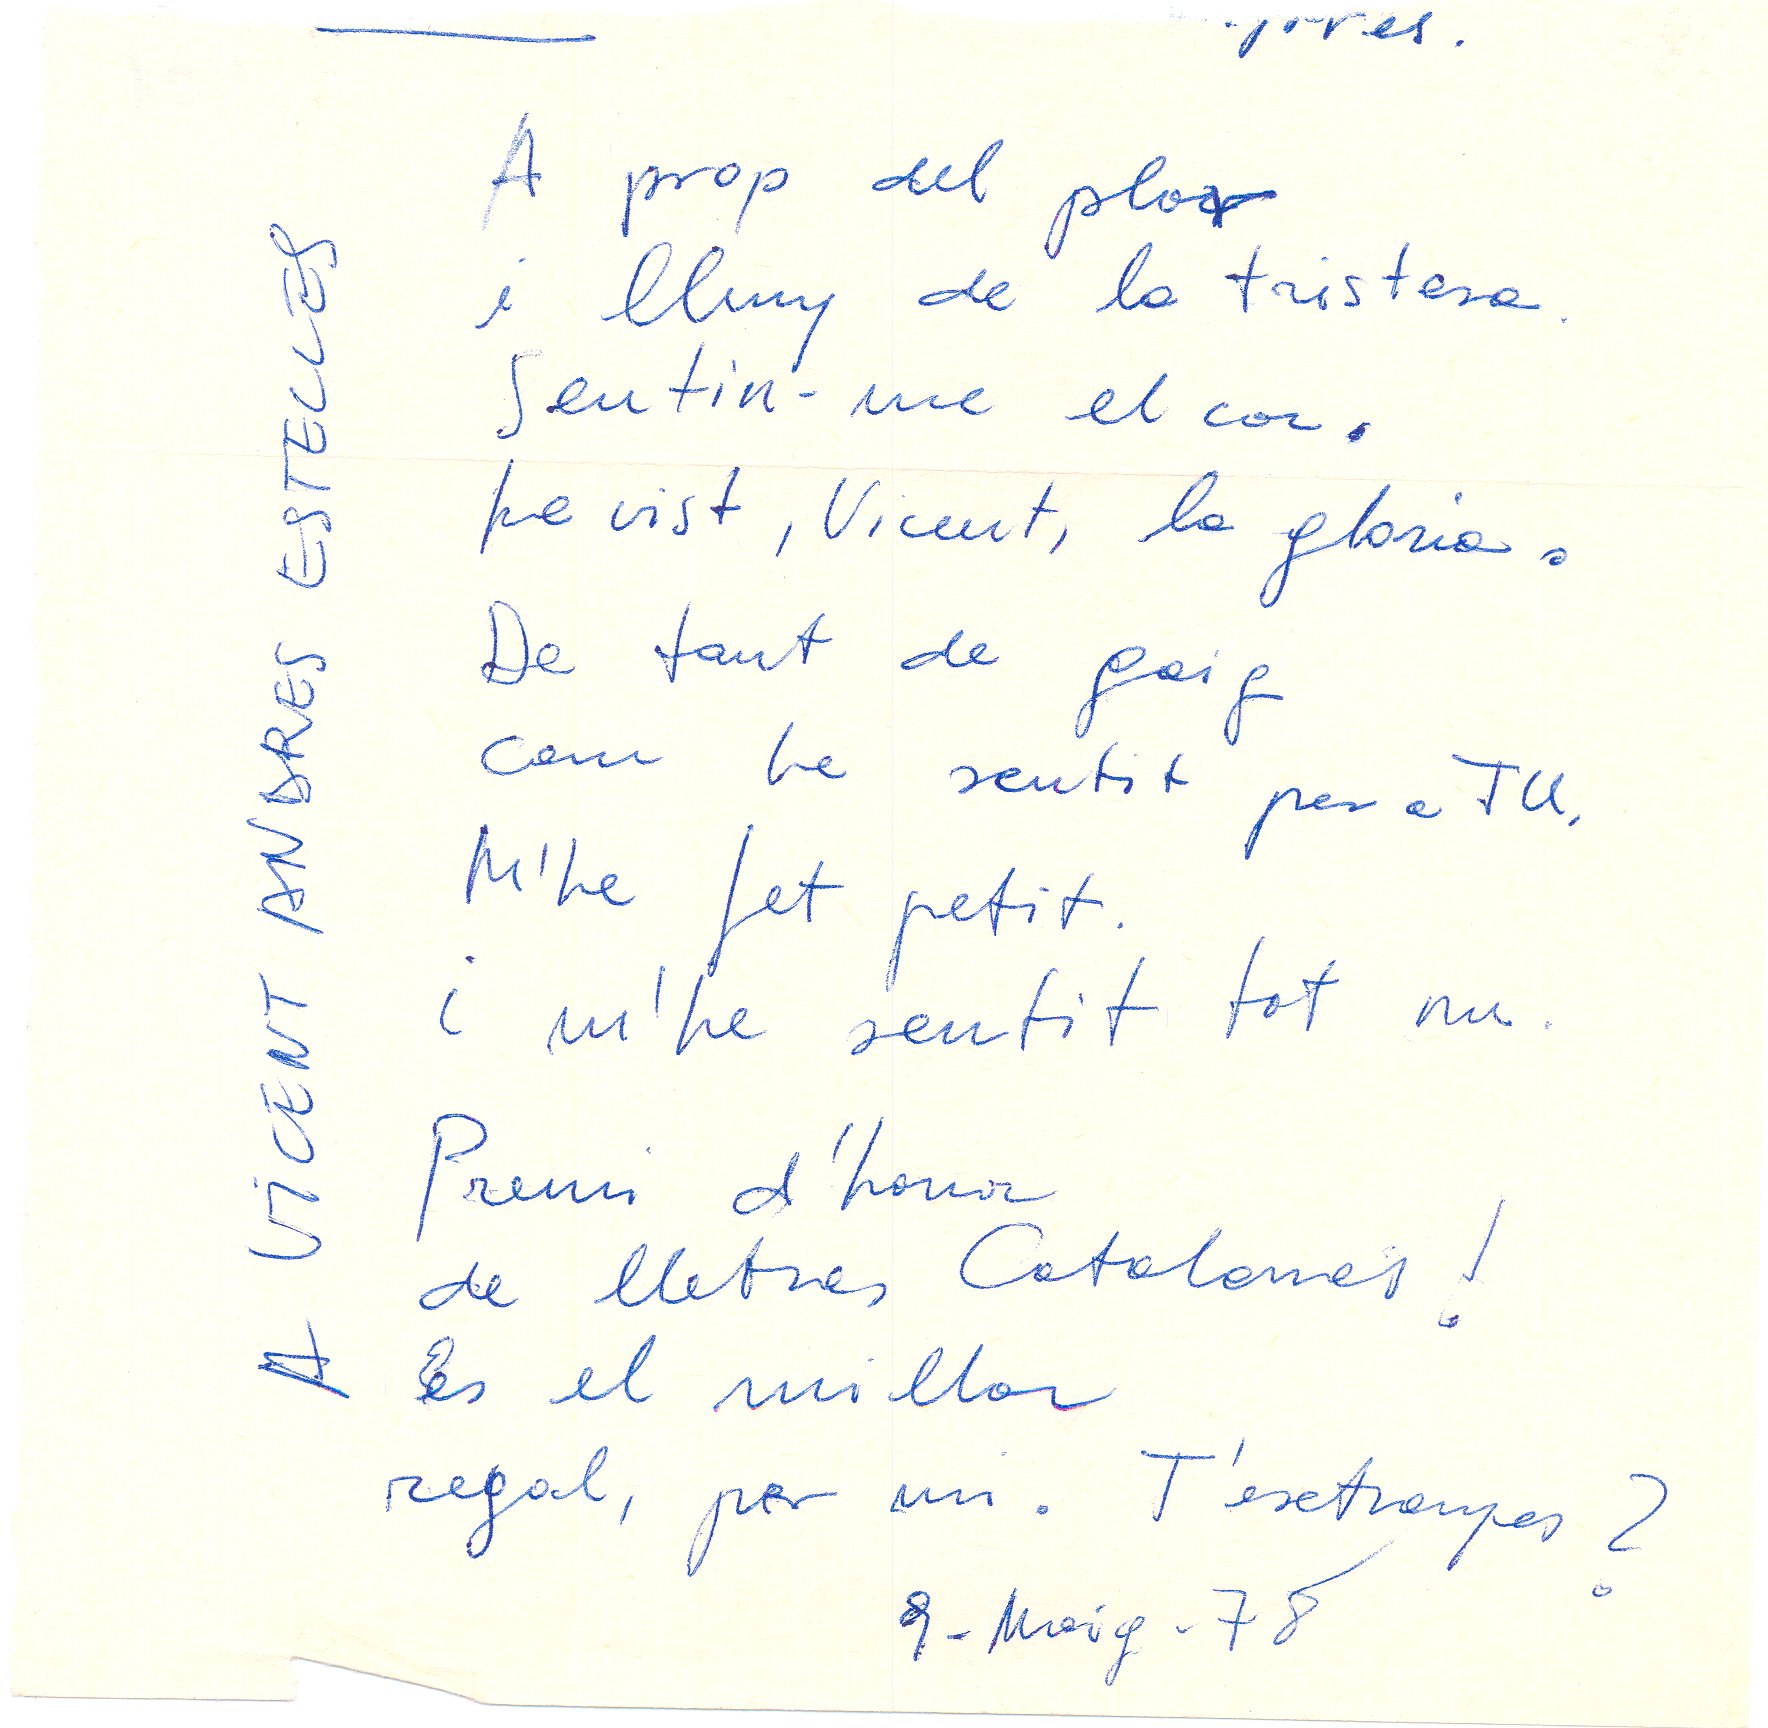 A prop del plor
i lluny de la tristesa.
Sentin-me el cor.
he vist, Vicent, la gloria.
De tant de goig
com he sentit per a TU,
M'he fet petit.
i m'he sentit tot nu.
Premi d'honor
de lletres Catalanes!
És el millor
regal, per mi. T'extranyes?
9-Maig-78
A VICENT ANDRES ESTELLES